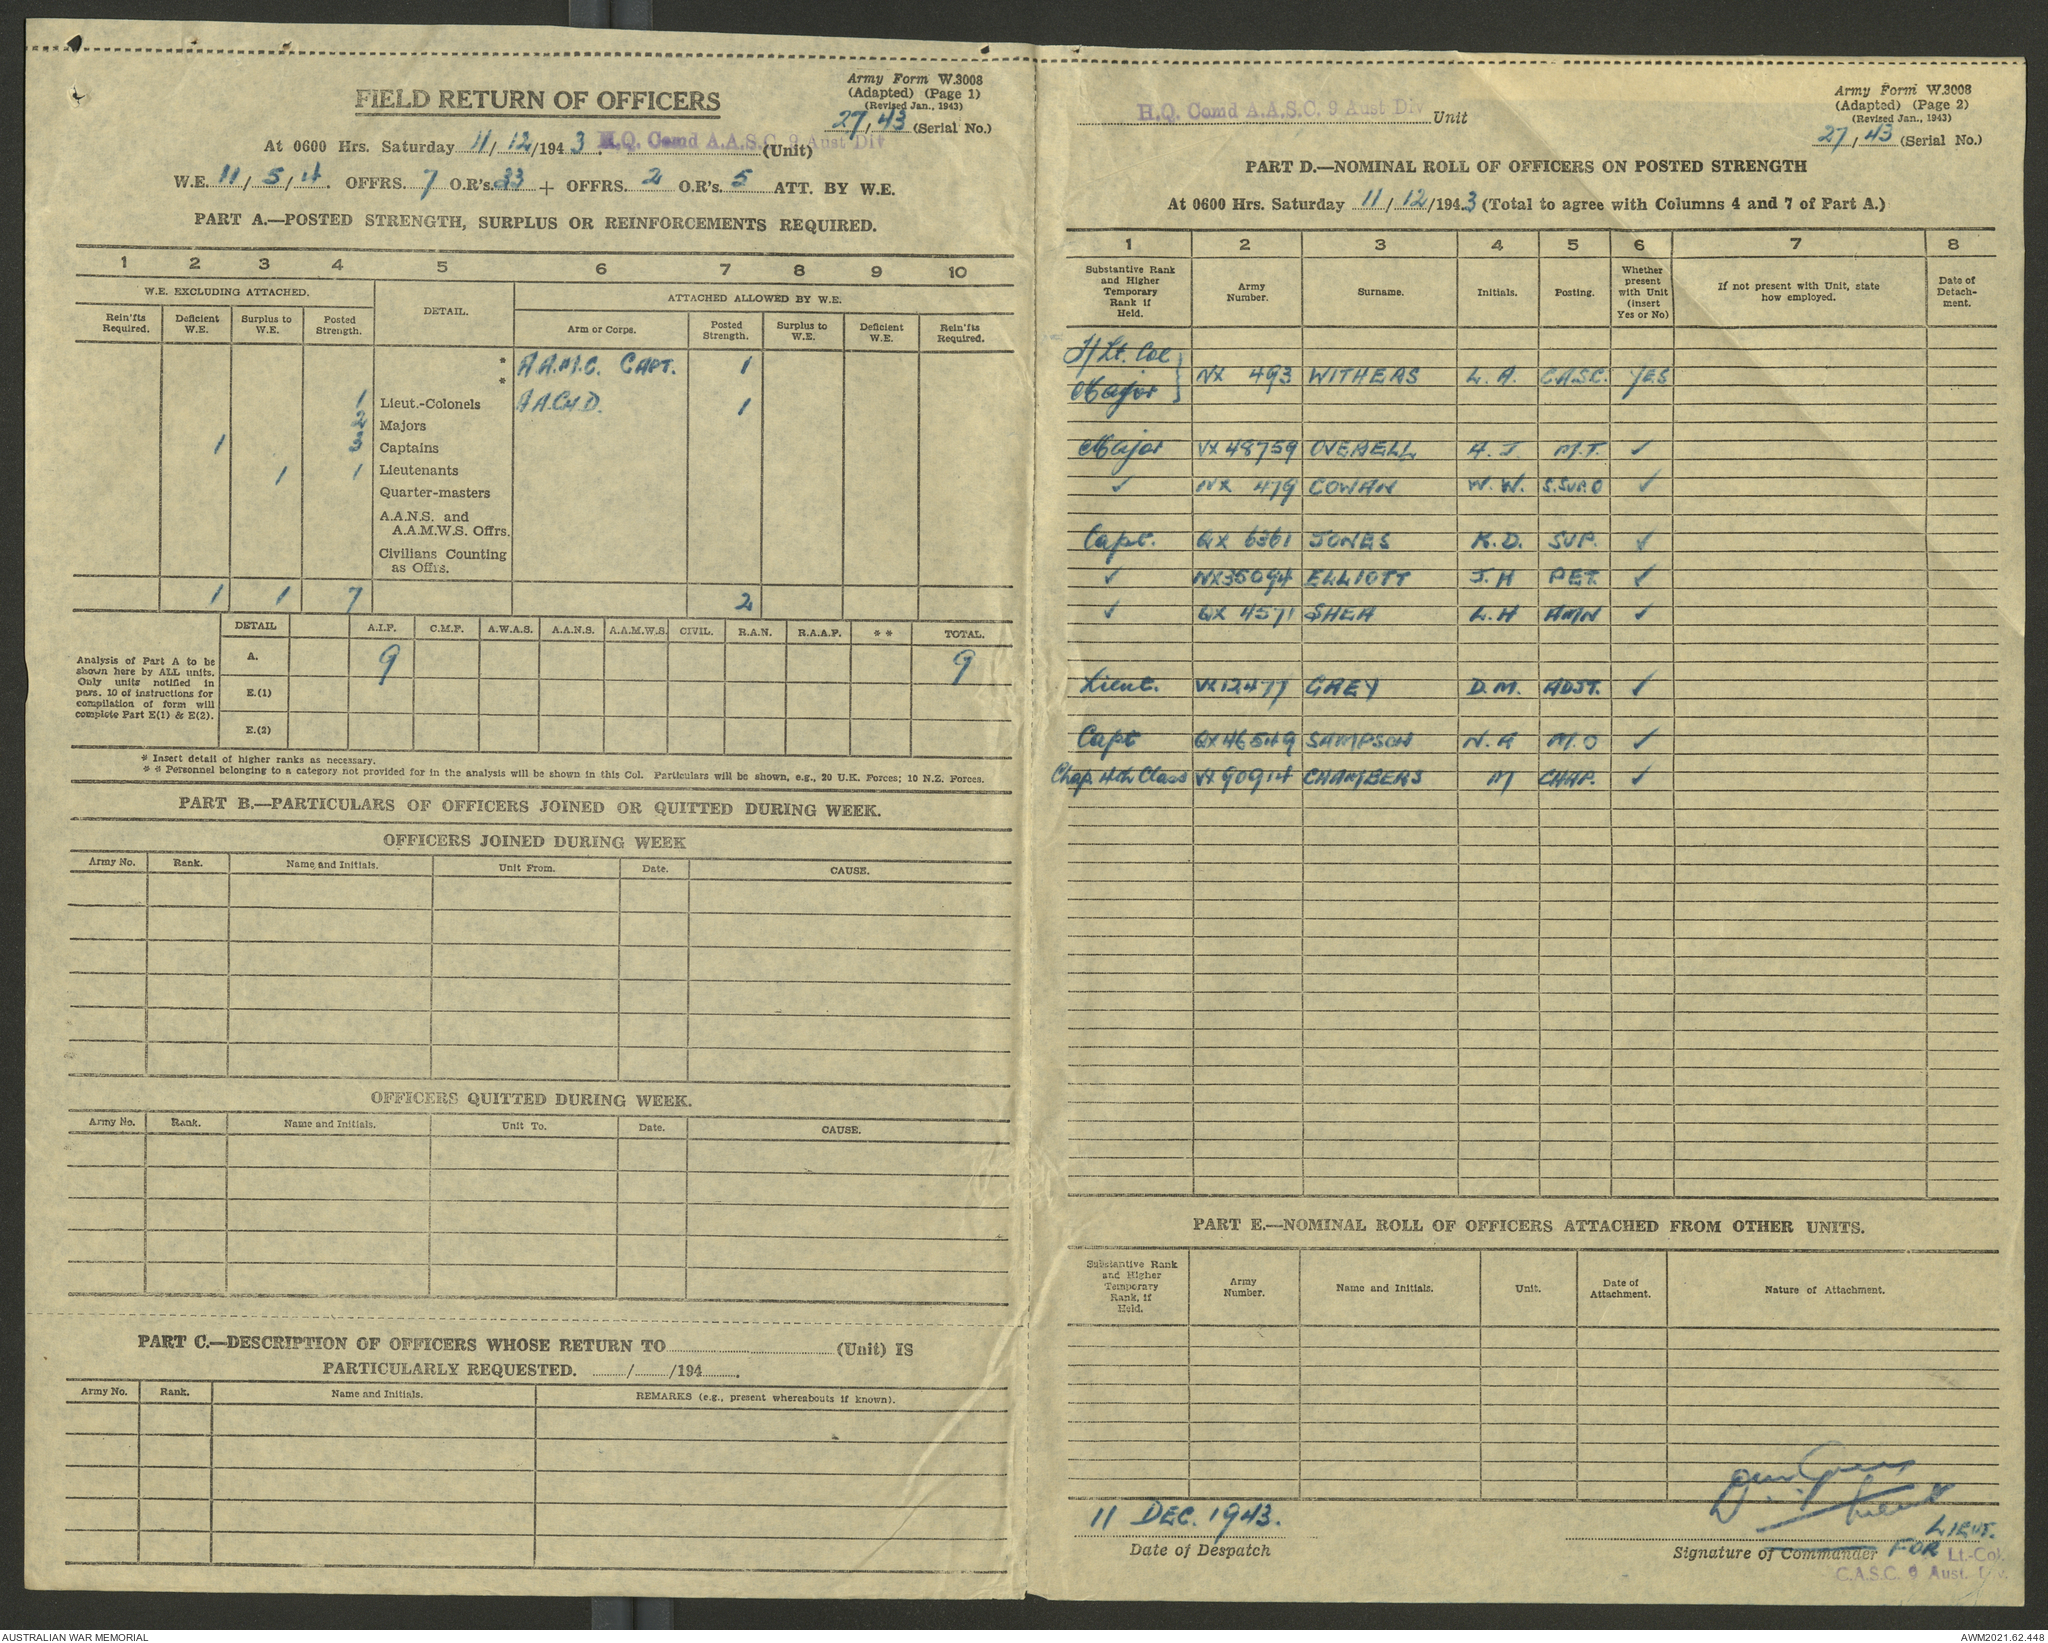 Army Form W.3008
(Adapted) (Page 1)
(Revised Jan., 1943)
27/43 (Serial No.)
FIELD RETURN OF OFFICERS
At 0600 Hrs. Saturday 11/12/1943. H.Q. Comd A.A.S.C. 9 Aust Div (Unit)
W.E. 11/5/4. OFFRS. 7 O.R's. 33 + OFFRS. 2 O.R's. 5 ATT. BY W.E.
PART A.—POSTED STRENGTH, SURPLUS OR REINFORCEMENTS REQUIRED.
1 2 3 4 5 6 7 8 9 10
W.E. EXCLUDING ATTACHED. DETAIL. ATTACHED ALLOWED BY W.E.
Rein'fts Required. Deficient W.E. Surplus to W.E. Posted Strength. Arm or Corps. Posted Strength. Surplus to W.E. Deficient W.E. Rein'fts Required.
* A.A.M.C. CAPT. 1
*
1 Lieut.-Colonels A.A.CH.D. 1
2 Majors
1 3 Captains
1 1 Lieutenants
Quarter-masters
A.A.N.S. and
A.A.M.W.S. Offrs.
Civilians Counting
as Offrs.
1 1 7 2
DETAIL A.I.F. C.M.F. A.W.A.S. A.A.N.S. A.A.M.W.S. CIVIL. R.A.N. R.A.A.F. ** TOTAL.
Analysis of Part A to be shown here by ALL units. Only units notified in para. 10 of instructions for compilation of form will complete Part E(1) & E(2).
A. 9 9
E.(1)
E.(2)
* Insert detail of higher ranks as necessary.
** Personnel belonging to a category not provided for in the analysis will be shown in this Col. Particulars will be shown, e.g., 20 U.K. Forces; 10 N.Z. Forces.
PART B.—PARTICULARS OF OFFICERS JOINED OR QUITTED DURING WEEK.
OFFICERS JOINED DURING WEEK
Army No. Rank. Name and Initials. Unit From. Date. CAUSE.
OFFICERS QUITTED DURING WEEK.
Army No. Rank. Name and Initials. Unit To. Date. CAUSE.
PART C.—DESCRIPTION OF OFFICERS WHOSE RETURN TO (Unit) IS
PARTICULARLY REQUESTED. / /194 .
Army No. Rank. Name and Initials. REMARKS (e.g., present whereabouts if known).
Army Form W.3008
(Adapted) (Page 2)
(Revised Jan., 1943)
27/43 (Serial No.)
H.Q. Comd A.A.S.C. 9 Aust Div Unit
PART D.—NOMINAL ROLL OF OFFICERS ON POSTED STRENGTH
At 0600 Hrs. Saturday 11/12/1943 (Total to agree with Columns 4 and 7 of Part A.)
1 2 3 4 5 6 7 8
Substantive Rank and Higher Temporary Rank if Held. Army Number. Surname. Initials. Posting. Whether present with Unit (insert Yes or No) If not present with Unit, state how employed. Date of Detachment.
T/Lt. Col
Major } NX 493 WITHERS L. A. C.A.S.C. YES
Major VX 48759 OVERELL A. J. M.T. ✓
✓ NX 479 COWAN W. W. S.SUP.O ✓
Capt. QX 6361 JONES K. D. SUP. ✓
✓ NX35094 ELLIOTT J. H PET. ✓
✓ QX 4571 SHEA L. H AMN ✓
Lieut. VX12477 GREY D. M. ADJT. ✓
Capt QX46549 SAMPSON N. A M. O ✓
Chap. 4th Class VX 90914 CHAMBERS M CHAP. ✓
PART E.—NOMINAL ROLL OF OFFICERS ATTACHED FROM OTHER UNITS.
Substantive Rank and Higher Temporary Rank, if Held. Army Number. Name and Initials. Unit. Date of Attachment. Nature of Attachment.
11 DEC. 1943.
Date of Despatch
LIEUT.
Signature of Commander FOR Lt.-Col.
C.A.S.C. 9 Aust. Div.
AUSTRALIAN WAR MEMORIAL
AWM2021.62.448